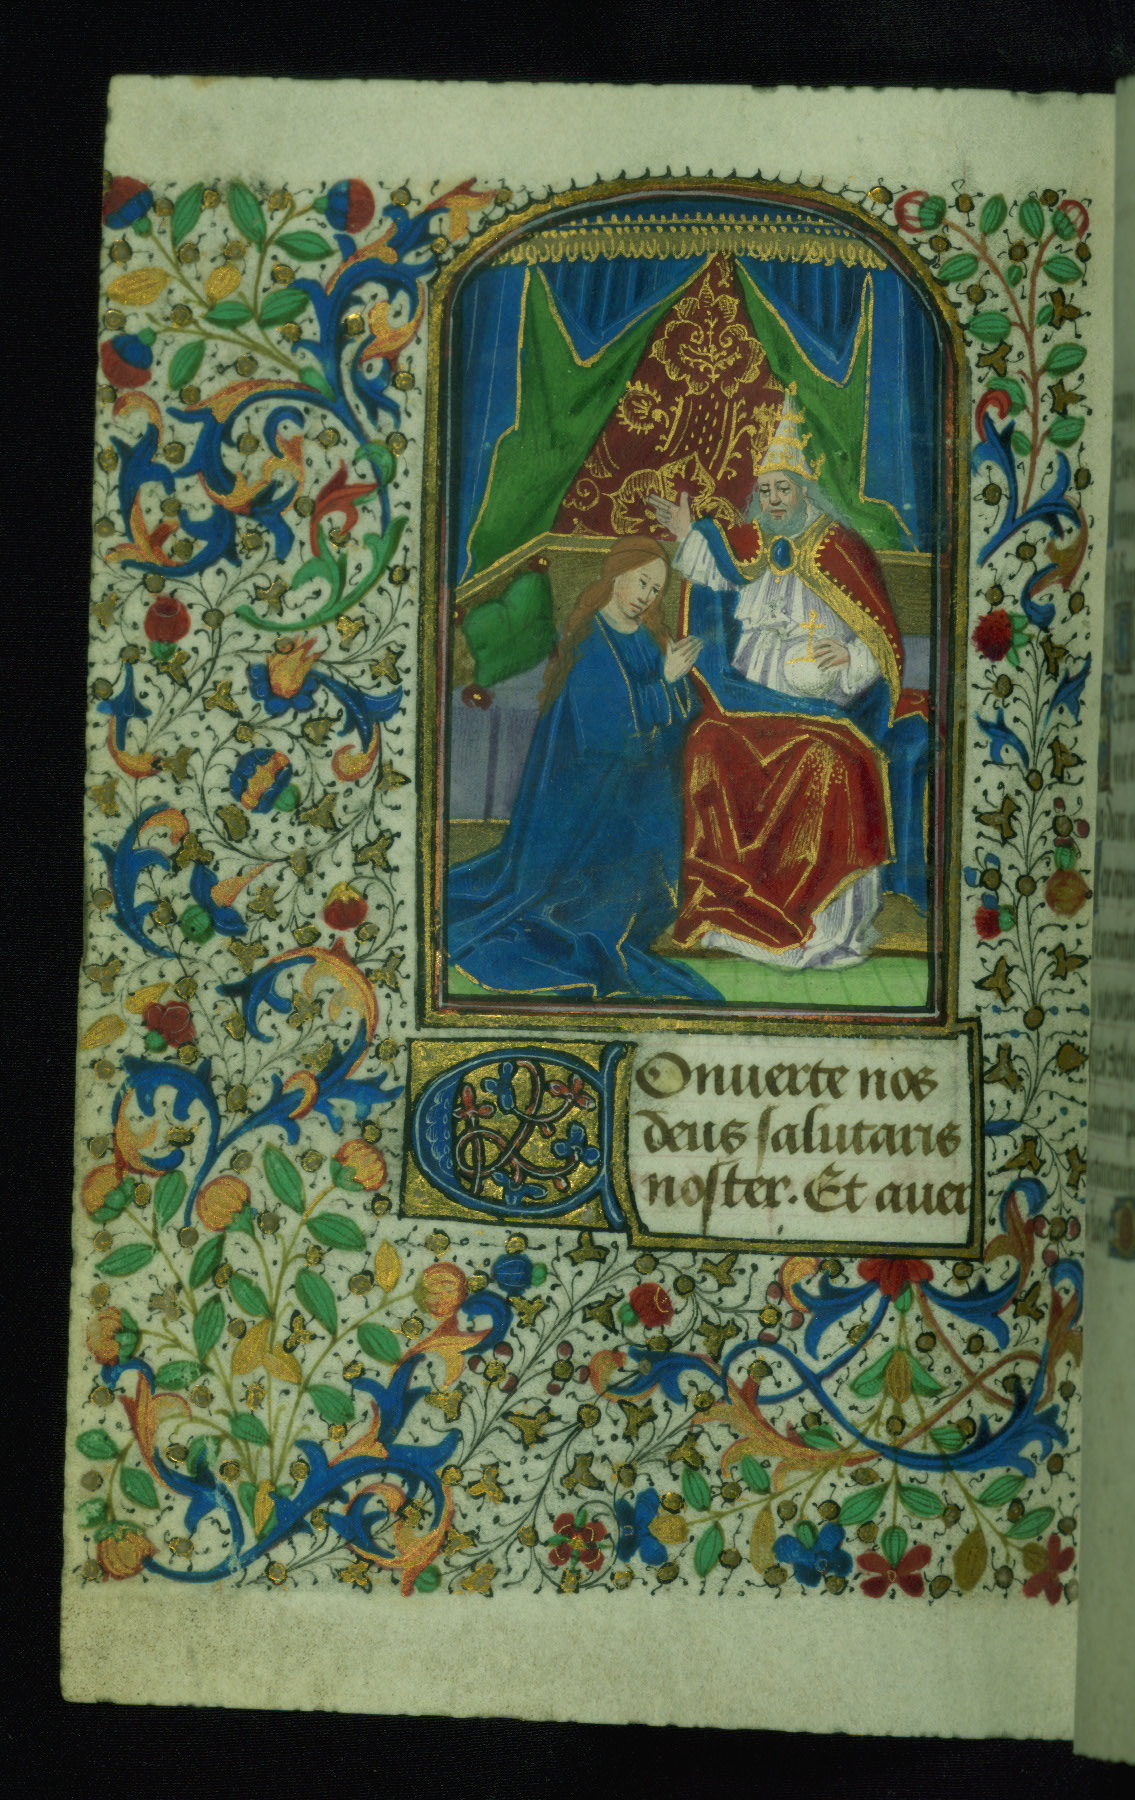 Conuerte nos
deus salutaris
noster. Et auer